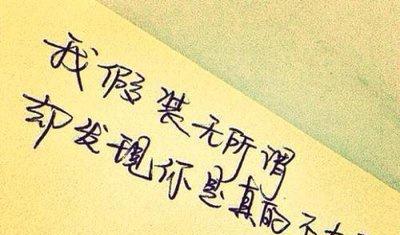 我假装无所谓
却发现你是真的不